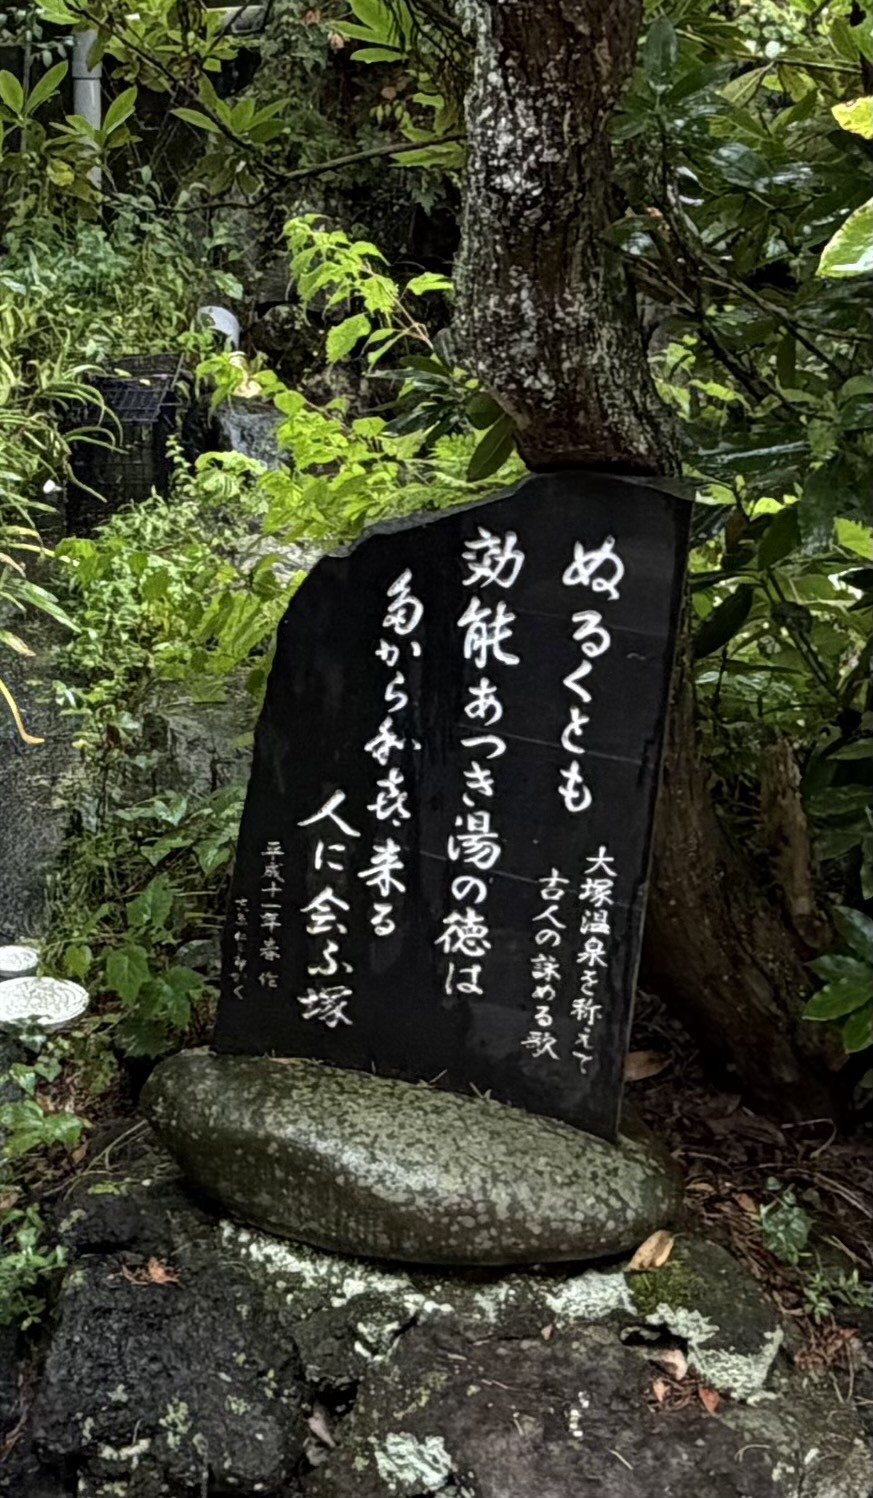 ぬるくとも
大塚温泉を称えて
古人の詠める歌
効能あつき湯の徳は
多から和喜来る
人に会ふ塚
平成十一年春 作